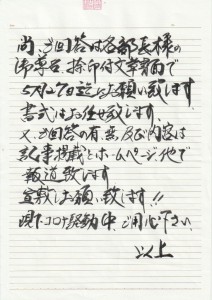 尚、ご回答は各部長様の
御署名、捺印付文章で
5月27日迄にお願い致します
書式はお任せ致します。
又、ご回答の有無及び内容は
記事掲載とホームページ他で
報道致します
宜敷しお願い致します!!
現下コロナ騒動中、ご用心下さい
以上